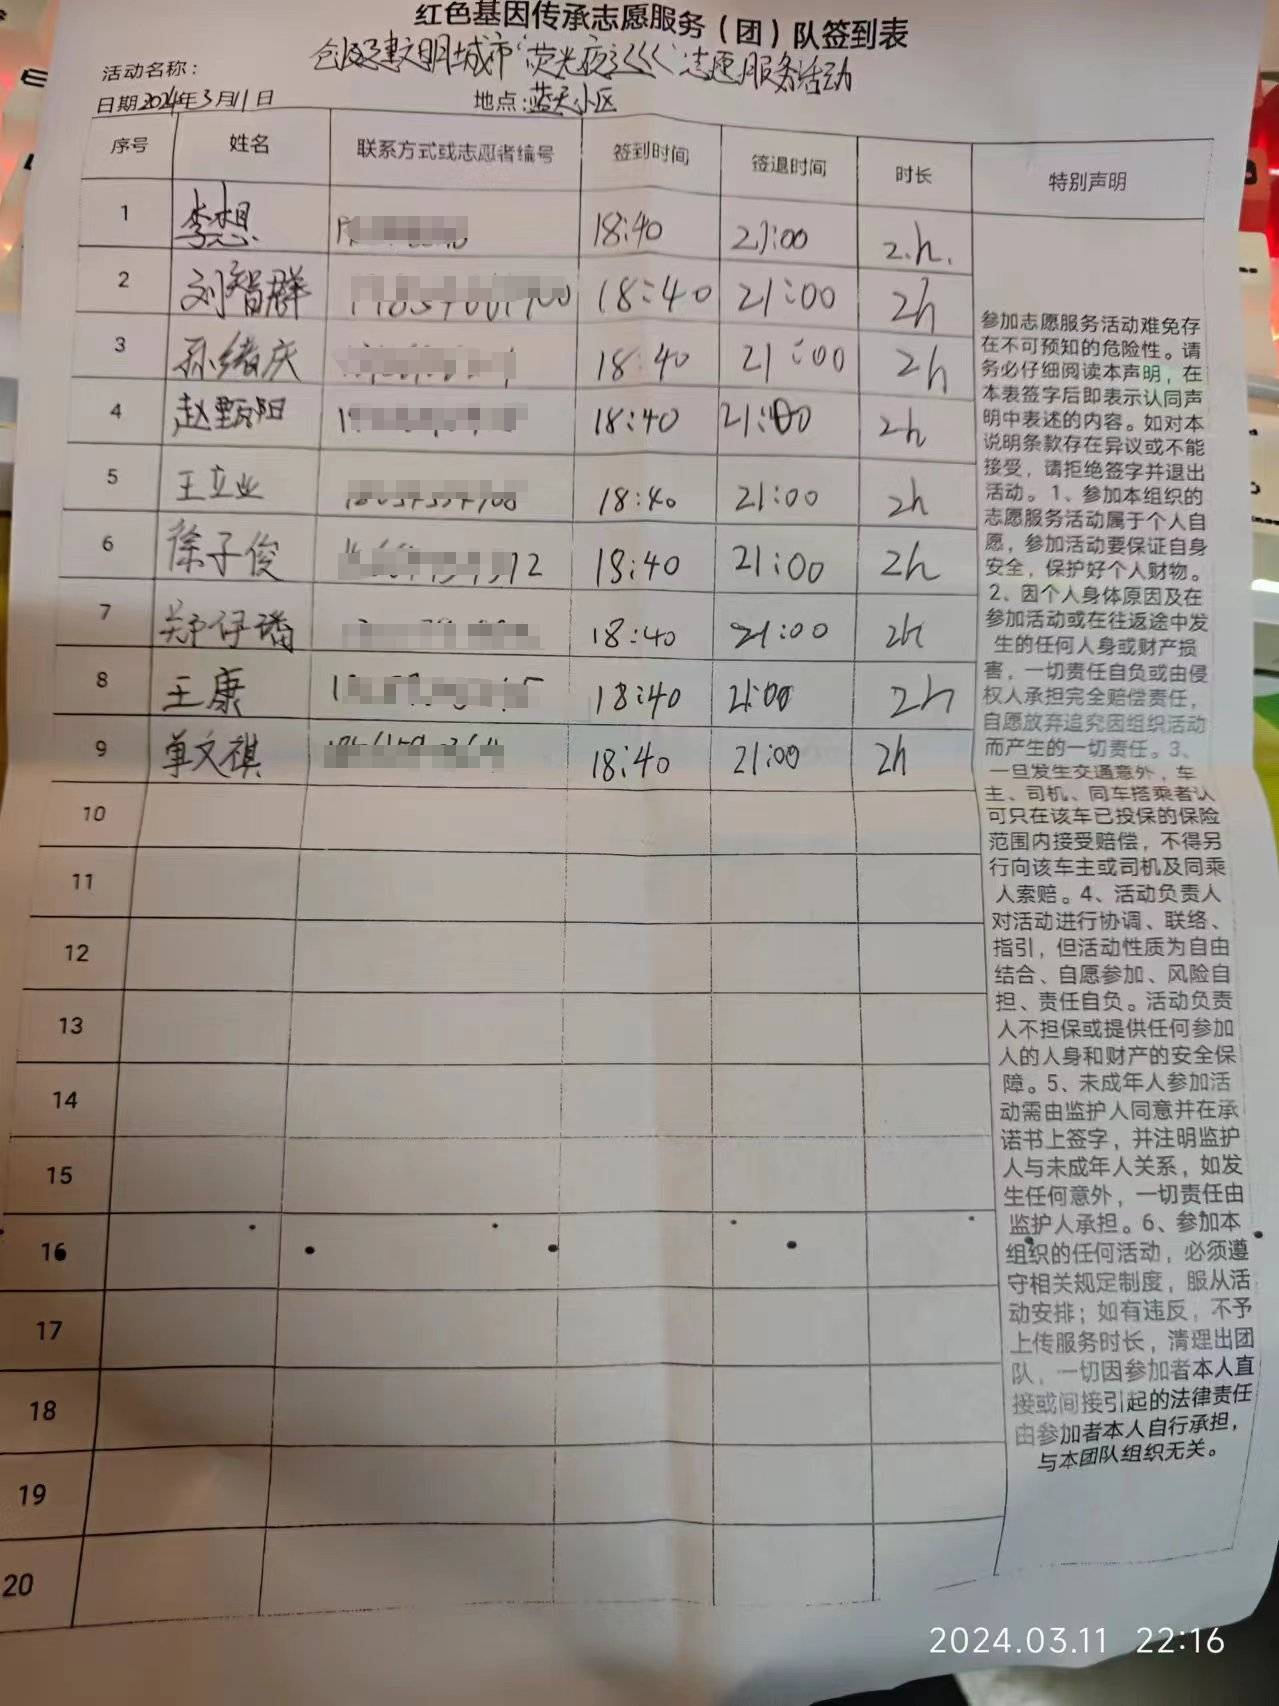 红色基因传承志愿服务（团）队签到表
活动名称：创建文明城市“荧光夜巡”志愿服务活动
日期2024年3月11日 地点：蓝天小区
序号 姓名 联系方式或志愿者编号 签到时间 签退时间 时长 特别声明
1 李想 18:40 21:00 2.h.
2 刘智群 18:40 21:00 2h
3 孙绪庆 18:40 21:00 2h
4 赵甄阳 18:40 21:00 2h
5 王立业 18:40 21:00 2h
6 徐子俊 18:40 21:00 2h
7 郑伊璠 18:40 21:00 2h
8 王康 18:40 21:00 2h
9 单文祺 18:40 21:00 2h
10
11
12
13
14
15
16
17
18
19
20
参加志愿服务活动难免存
在不可预知的危险性。请
务必仔细阅读本声明，在
本表签字后即表示认同声
明中表述的内容。如对本
说明条款存在异议或不能
接受，请拒绝签字并退出
活动。1、参加本组织的
志愿服务活动属于个人自
愿，参加活动要保证自身
安全，保护好个人财物。
2、因个人身体原因及在
参加活动或在往返途中发
生的任何人身或财产损
害，一切责任自负或由侵
权人承担完全赔偿责任，
自愿放弃追究因组织活动
而产生的一切责任。3、
一旦发生交通意外，车
主、司机、同车搭乘者认
可只在该车已投保的保险
范围内接受赔偿，不得另
行向该车主或司机及同乘
人索赔。4、活动负责人
对活动进行协调、联络、
指引，但活动性质为自由
结合、自愿参加、风险自
担、责任自负。活动负责
人不担保或提供任何参加
人的人身和财产的安全保
障。5、未成年人参加活
动需由监护人同意并在承
诺书上签字，并注明监护
人与未成年人关系，如发
生任何意外，一切责任由
监护人承担。6、参加本
组织的任何活动，必须遵
守相关规定制度，服从活
动安排；如有违反，不予
上传服务时长，清理出团
队，一切因参加者本人直
接或间接引起的法律责任
由参加者本人自行承担，
与本团队组织无关。
2024.03.11 22:16